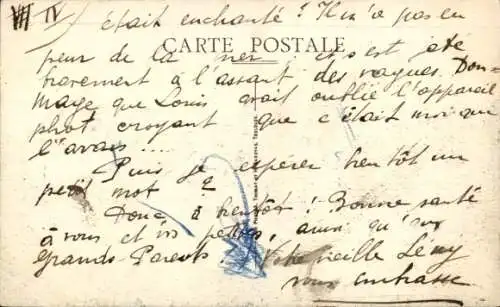 VII IV
était enchanté ! Il n'a pas eu
peur de la mer, et s'est jeté
CARTE POSTALE
bravement à l'assaut des vagues. Dom-
mage que Louis avait oublié l'appareil
phot croyant que c'était moi qui
l'avais ....
Puis je espérer bientôt un
petit mot ?
Donc à bientôt ! Bonne santé
à vous et vos petites, ainsi qu'aux
Grands Parents. Votre vieille
vous embrasse